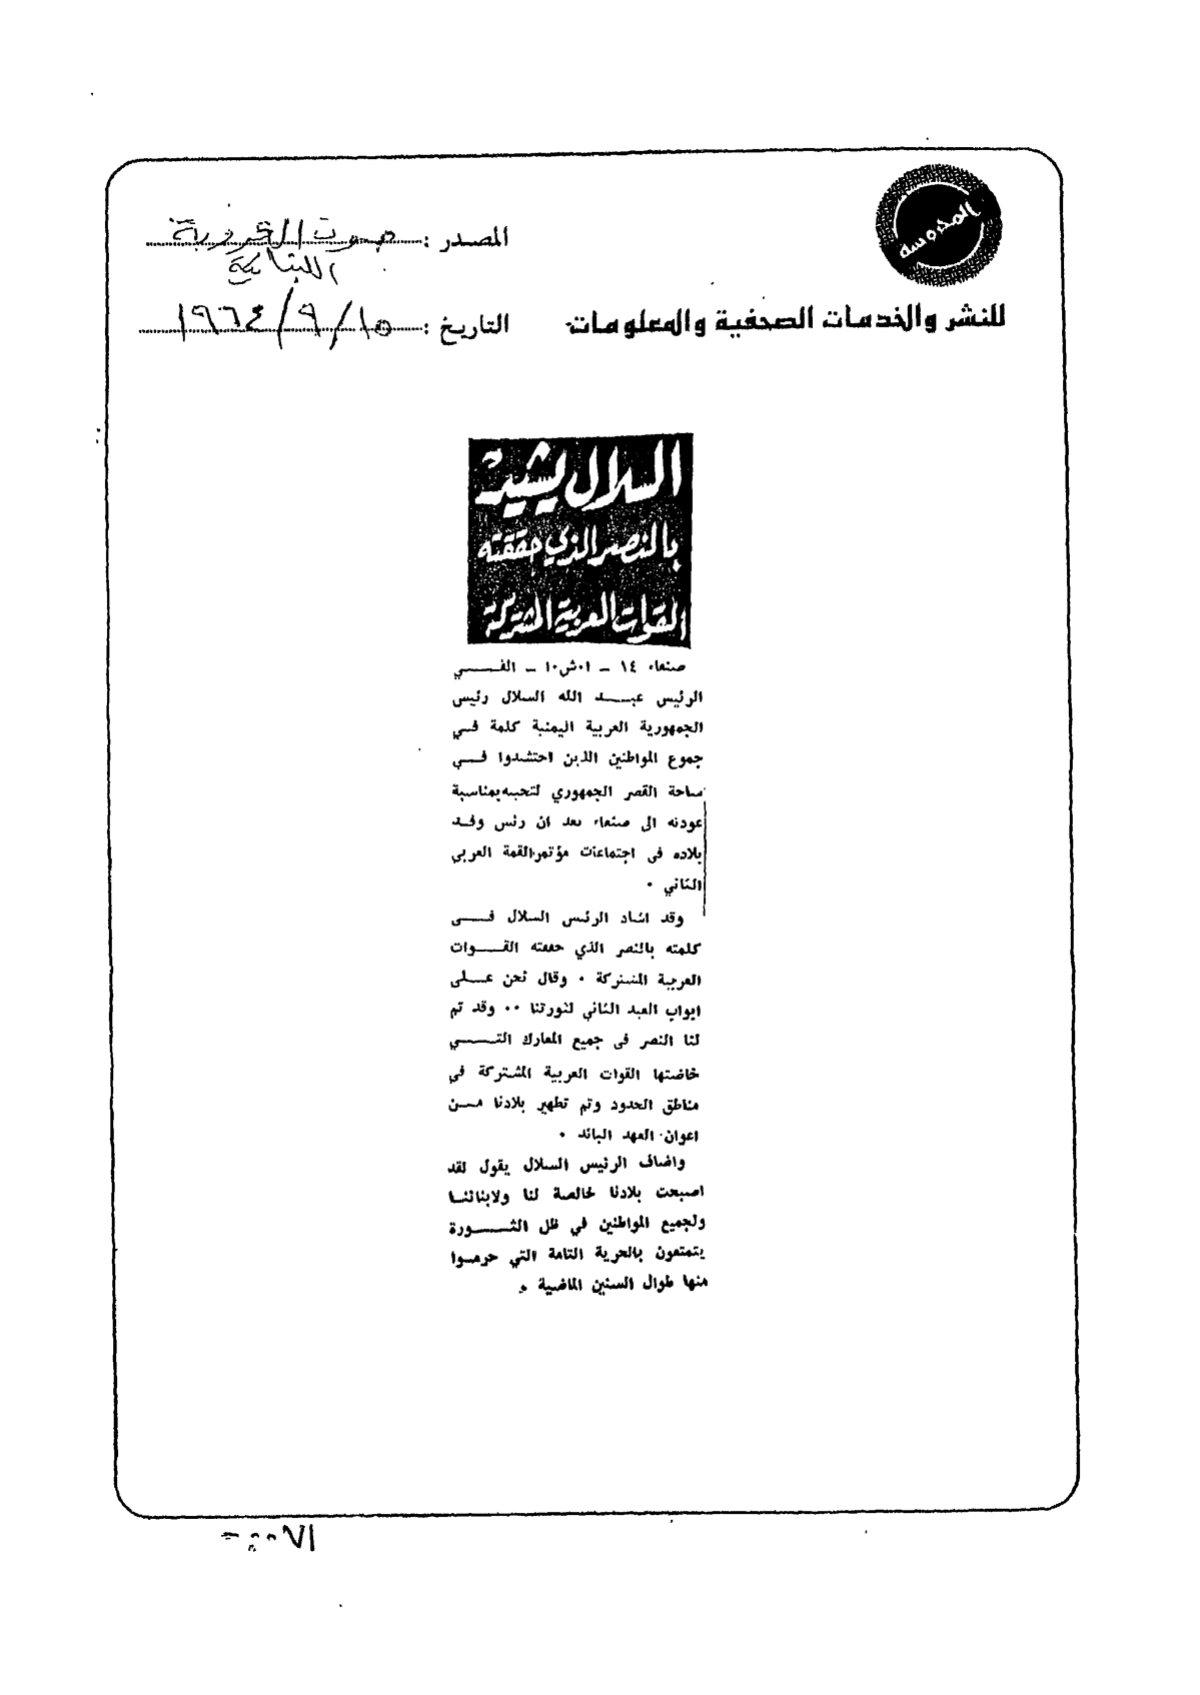 المحروسة
للنشر والخدمات الصحفية والمعلومات
المصدر : صوت العروبة
اللبنانية
التاريخ : ١٥/٩/١٩٦٤
السلال يشيد
بالنصر الذي حققته
القوات العربية المشتركة
صنعاء ١٤ - ا٠ش٠ا - القـــي
الرئيس عبـــد الله السلال رئيس
الجمهورية العربية اليمنية كلمة فــي
جموع المواطنين الذين احتشدوا فـــي
ساحة القصر الجمهوري لتحيته بمناسبة
عودته الى صنعاء بعد ان رئس وفــد
بلاده في اجتماعات مؤتمر القمة العربي
الثاني ٠
وقد اشاد الرئيس السلال فـــى
كلمته بالنصر الذي حققته القـــوات
العربية المشتركة ٠ وقال نحن عــلى
ابواب العيد الثاني لثورتنا ٠٠ وقد تم
لنا النصر في جميع المعارك التـــي
خاضتها القوات العربية المشتركة في
مناطق الحدود وتم تطهير بلادنا مــن
اعوان العهد البائد ٠
واضاف الرئيس السلال يقول لقد
اصبحت بلادنا خالصة لنا ولابنائنــا
ولجميع المواطنين في ظل الثـــورة
يتمتعون بالحرية التامة التي حرمــوا
منها طوال السنين الماضية ٠